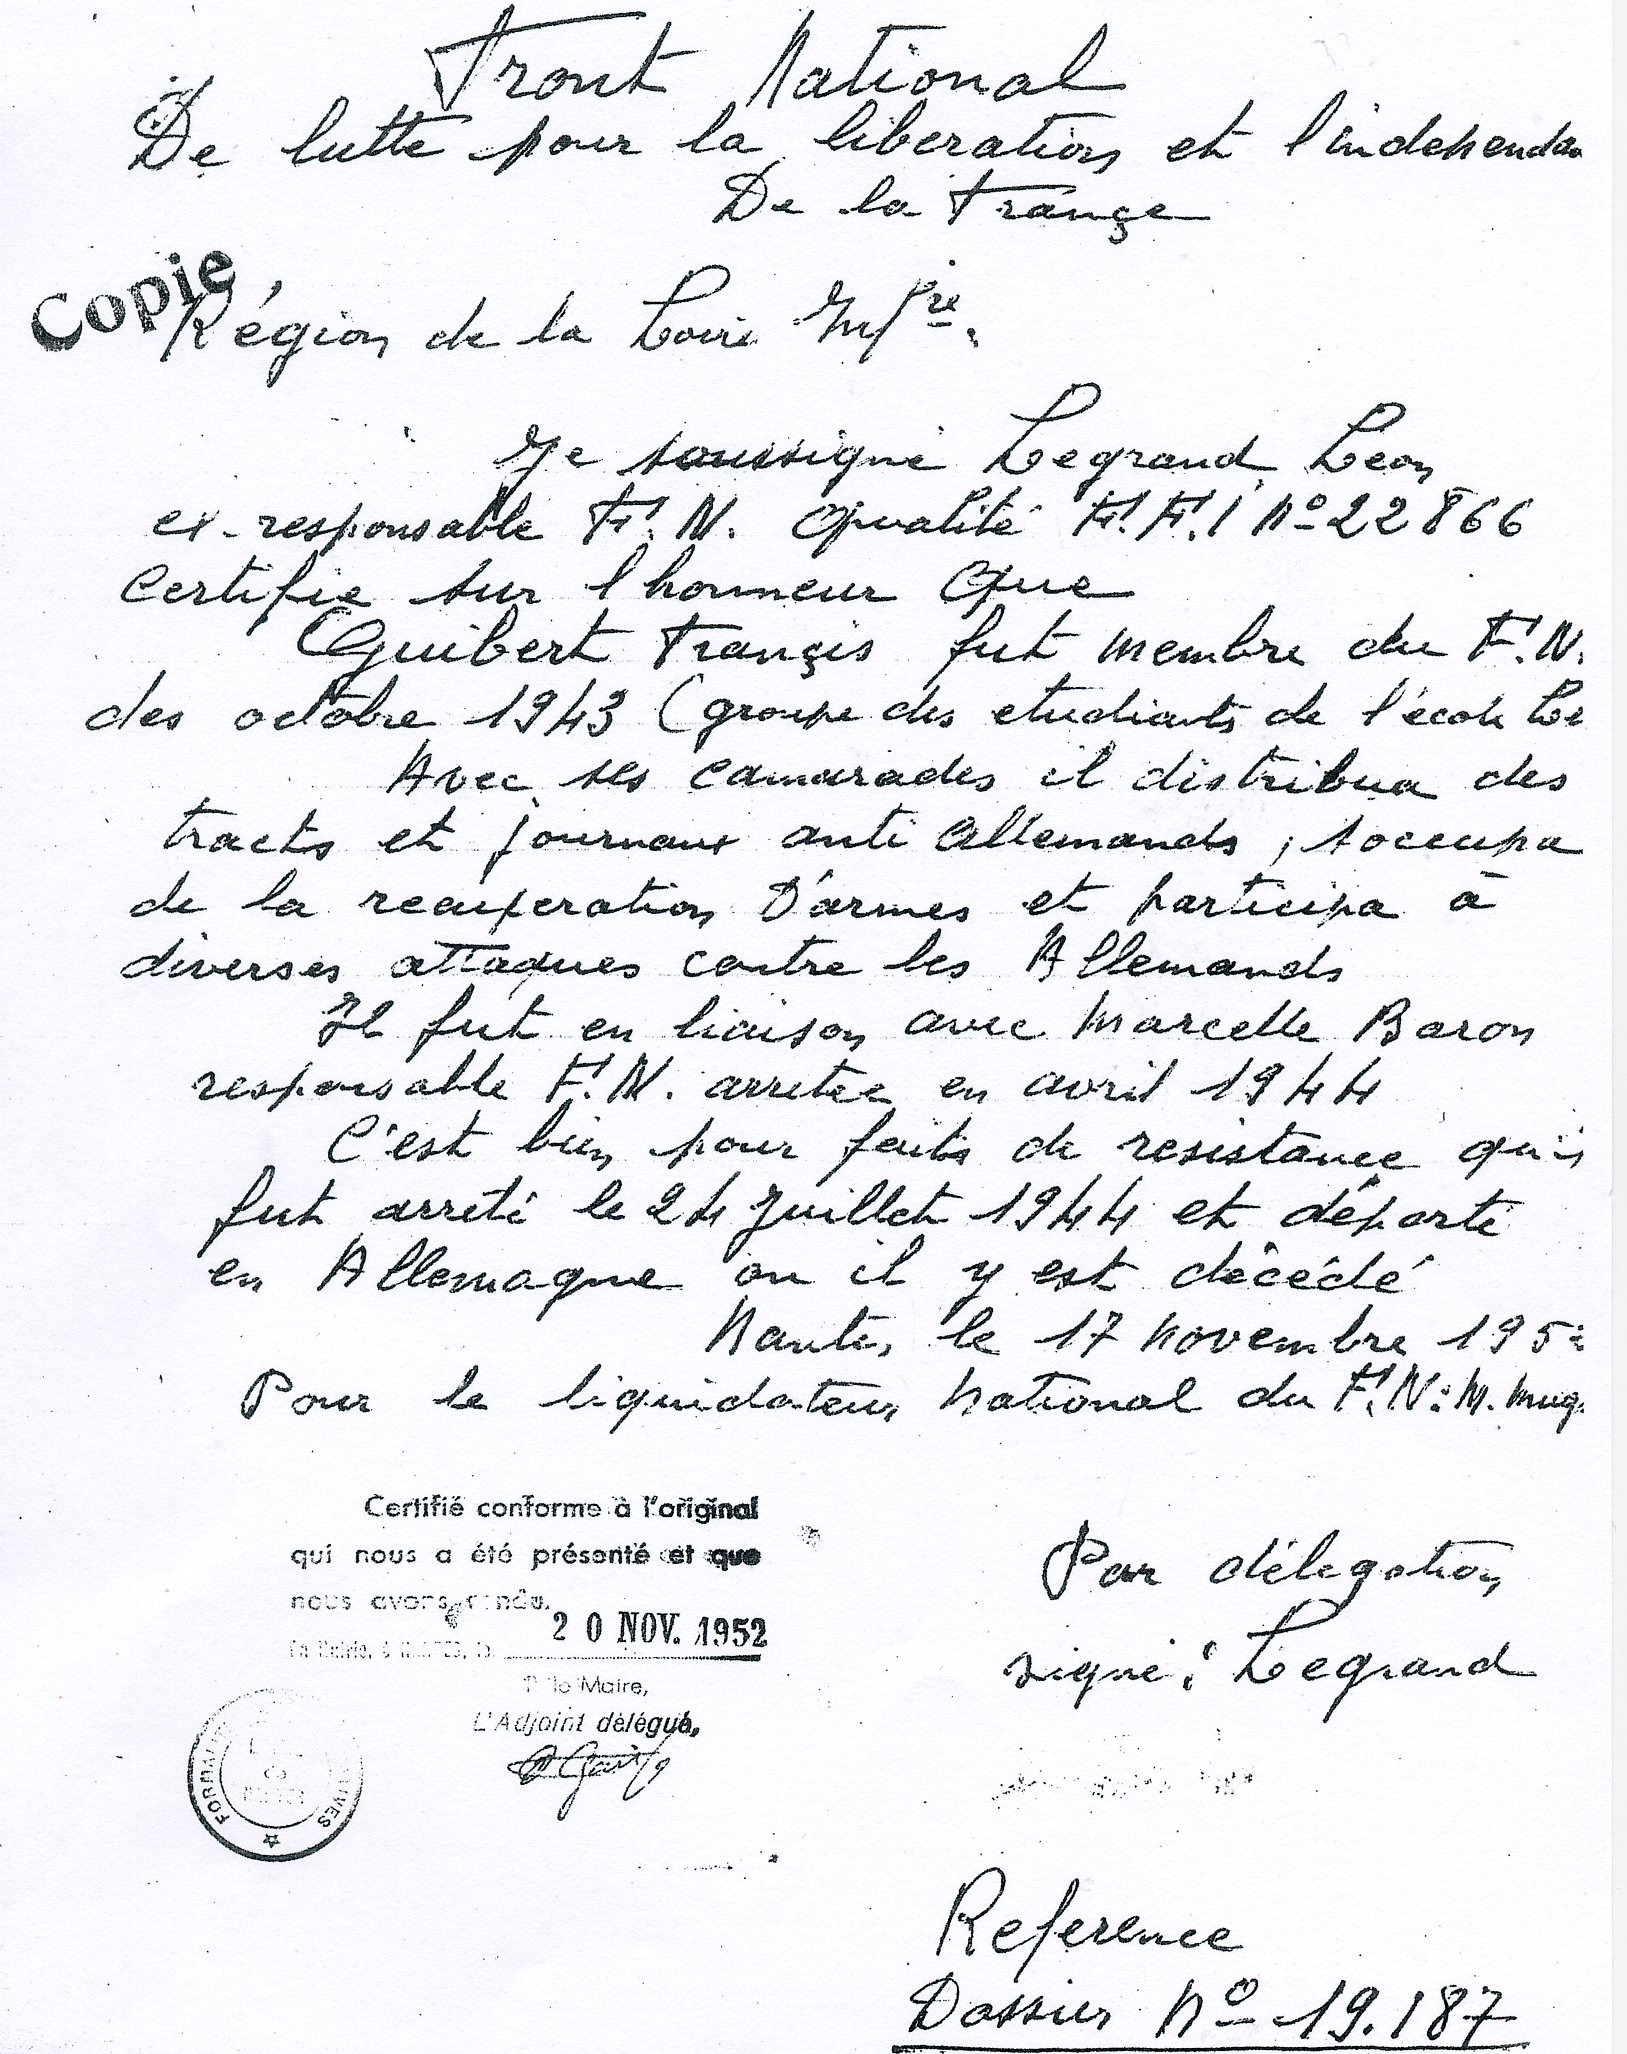 Front National
De lutte pour la liberation et l'independan
De la France
Copie
Région de la Loire Infre.
Je soussigné Legrand Léon
ex-responsable F.N. Qualité F.F.I No 22866
Certifie sur l honneur Que
Guibert Françis fut membre du F.N.
des octobre 1943 (groupe des etudiants de l'école Le
Avec ses camarades il distribua des
tracts et journaux anti Allemands, soccupa
de la recuperation D'armes et participa à
diverses attaques contre les Allemands
Il fut en liaison avec Marcelle Baron
responsable F.N. arretée en avril 1944
C'est bien pour faits de resistance qu'i
fut arreté le 24 Juillet 1944 et déporté
en Allemagne ou il y est décédé
Nantes, le 17 Novembre 195
Pour le liquidateur National du F.N: M. Mug
Certifié conforme à l'original
qui nous a été présenté et que
nous avons rendu.
20 NOV. 1952
P. le Maire,
L'Adjoint délégué,
Par délegation
signé: Legrand
Reference
Dossier No 19.187